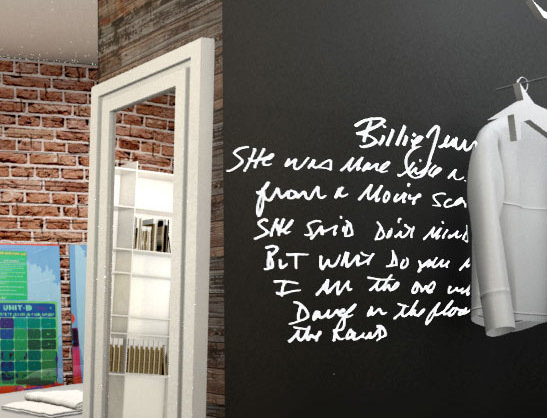 Billie Jean
SHe was More like a
from a Movie Sce
SHe SAiD Don't Mind
BuT WHAT Do you m
I AM the one
Dance on the floo
the Round
UNIT-D